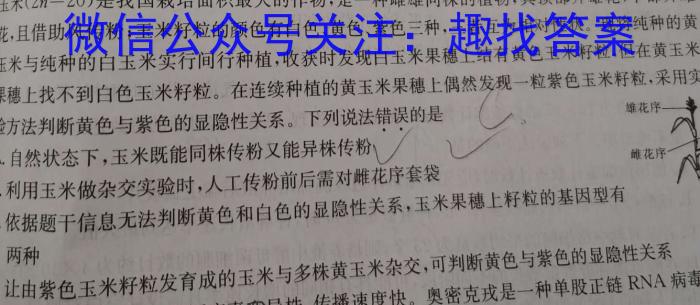 玉米(2n=20)是我国栽培面积最大的作物,是一种雌雄同株的植物,其顶部开雄花,
花,且借助 玉米籽粒的颜色有白色、黄色、紫色三种,
微信公众号关注:趣找答案
玉米与纯种的白玉米实行间行种植,收获时发现白玉米果穗上结有黄色玉米籽粒,但在黄玉米
果穗上找不到白色玉米籽粒。在连续种植的黄玉米果穗上偶然发现一粒紫色玉米籽粒,采用实
验方法判断黄色与紫色的显隐性关系。下列说法错误的是
雄花序
雌花序
.自然状态下,玉米既能同株传粉又能异株传粉
.利用玉米做杂交实验时,人工传粉前后需对雌花序套袋
.依据题干信息无法判断黄色和白色的显隐性关系,玉米果穗上籽粒的基因型有
两种
让由紫色玉米籽粒发育成的玉米与多株黄玉米杂交,可判断黄色与紫色的显隐性关系
传播速度快。奥密克戎是一种单股正链RNA病毒